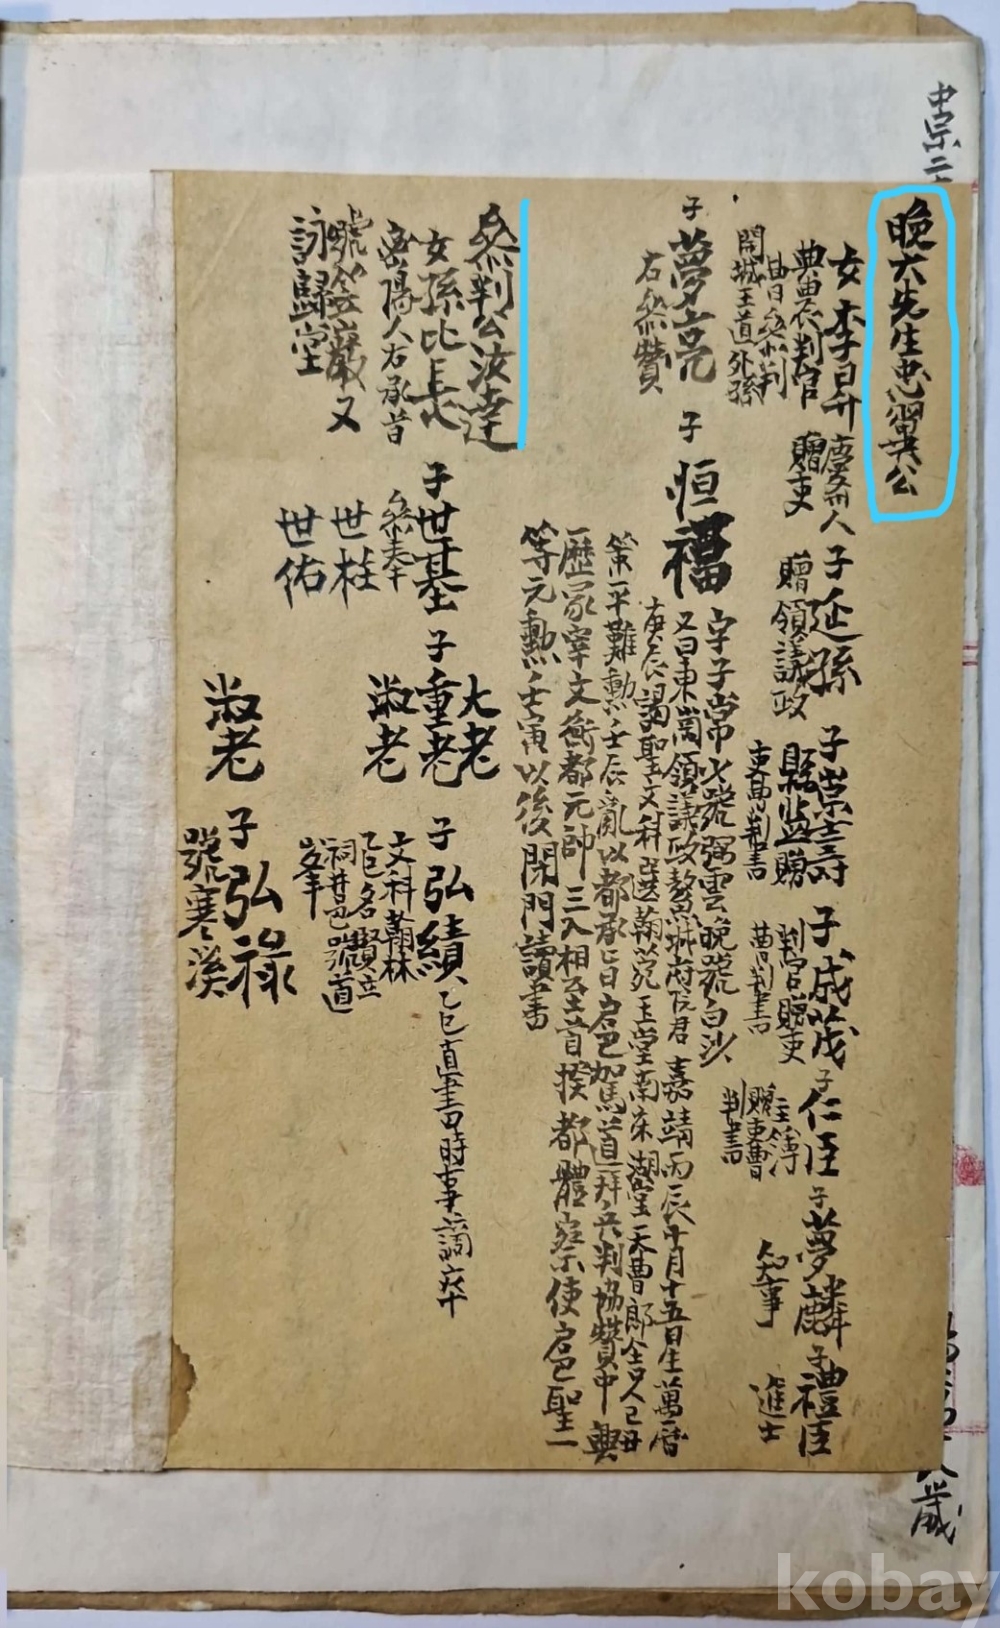 中宗二
八歲
晩六先生忠翼公
女李昇 慶州人 子延孫 子崇壽 子成茂 子仁臣 子夢麟 子禮臣
典農判官 贈吏曹參判 贈領議政 縣監贈吏曹判書 判官贈吏曹判書 主簿贈吏曹判書 知事 進士
開城王道外孫
子夢亮 子恒福 字子常 少號弼雲晩號白沙
右參贊
又曰東岡領議政鰲城府院君 嘉靖丙辰十月十五日生萬曆
庚辰謁聖文科選翰苑玉堂南床湖堂天曹郎舍人己丑
策平難勳壬辰亂以都承旨扈駕道拜兵判協贊中興
歷冢宰文衡都元帥三入相至首揆都體察使扈聖一
等元勳壬寅以後閉門讀書
參判公汝達
女孫比長 子世基 子重老 大老 淑老 子弘績 乙巳直書時事謫卒
密陽人右承旨 參奉 文科翰林
號笠巖又 世柱 乙巳名賢立
詠歸堂 世佑 祠井邑號道
峯
淑老 子弘祿
號寒溪
kobay